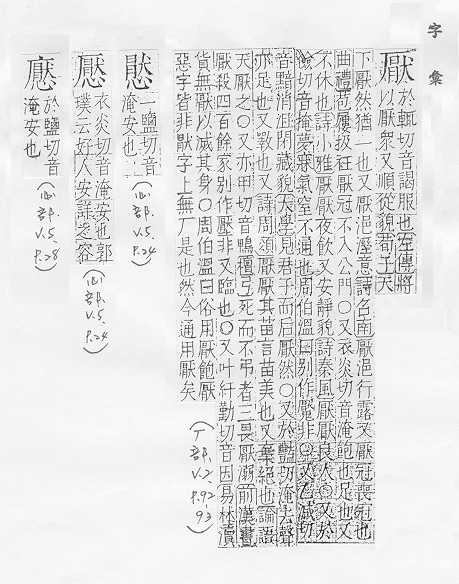 字彙
厭
於輒切音謁服也左傳將
以厭衆又順從貌荀子天
下厭然猶一也又厭浥溼意詩召南厭浥行露又厭冠喪冠也
曲禮苞屨扱衽厭冠不入公門○又衣炎切音淹飽也足也又
不休也詩小雅厭厭夜飲又安靜貌詩秦風厭厭良人○又於
檢切音掩夢寐氣窒不通也周伯溫曰別作魘非○又乙減切
音黯消沮閉藏貌大學見君子而后厭然○又於豔切淹去聲
亦足也又斁也又詩周頌厭厭其苗言苗美也又棄絕也論語
天厭之○又亦甲切音鴨檀弓死而不弔者三畏厭溺前漢書
厭殺四百餘家別作壓非又臨也○又叶紆勤切音因易林瀆
貨無厭以滅其身○周伯溫曰俗用厭飽厭
惡字皆非猒字上無厂是也然今通用厭矣
(厂部.V.2,P.92-93)
一鹽切音
淹安也
(心部.V.5,P.24)
懕
衣炎切音淹安也郭
璞云好人安詳之容
(心部V.5,P.24)
於鹽切音
淹安也
(心部.V.5,P.28)